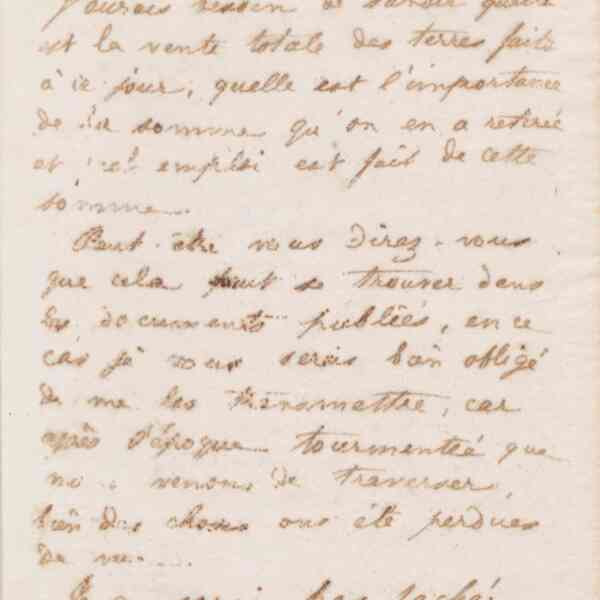 J'aurais besoin de savoir quelle
est la vente totale des terres faite
à ce jour, quelle est l'importance
de la somme qu'on en a retirée
et quel emploi est fait de cette
somme.
Peut-être vous direz-vous
que cela peut se trouver dans
les documents publiés, en ce
cas je vous serais bien obligé
de me les transmettre, car
après l'époque tourmentée que
nous venons de traverser,
bien des choses ont été perdues
de vue....
Je pas fâché